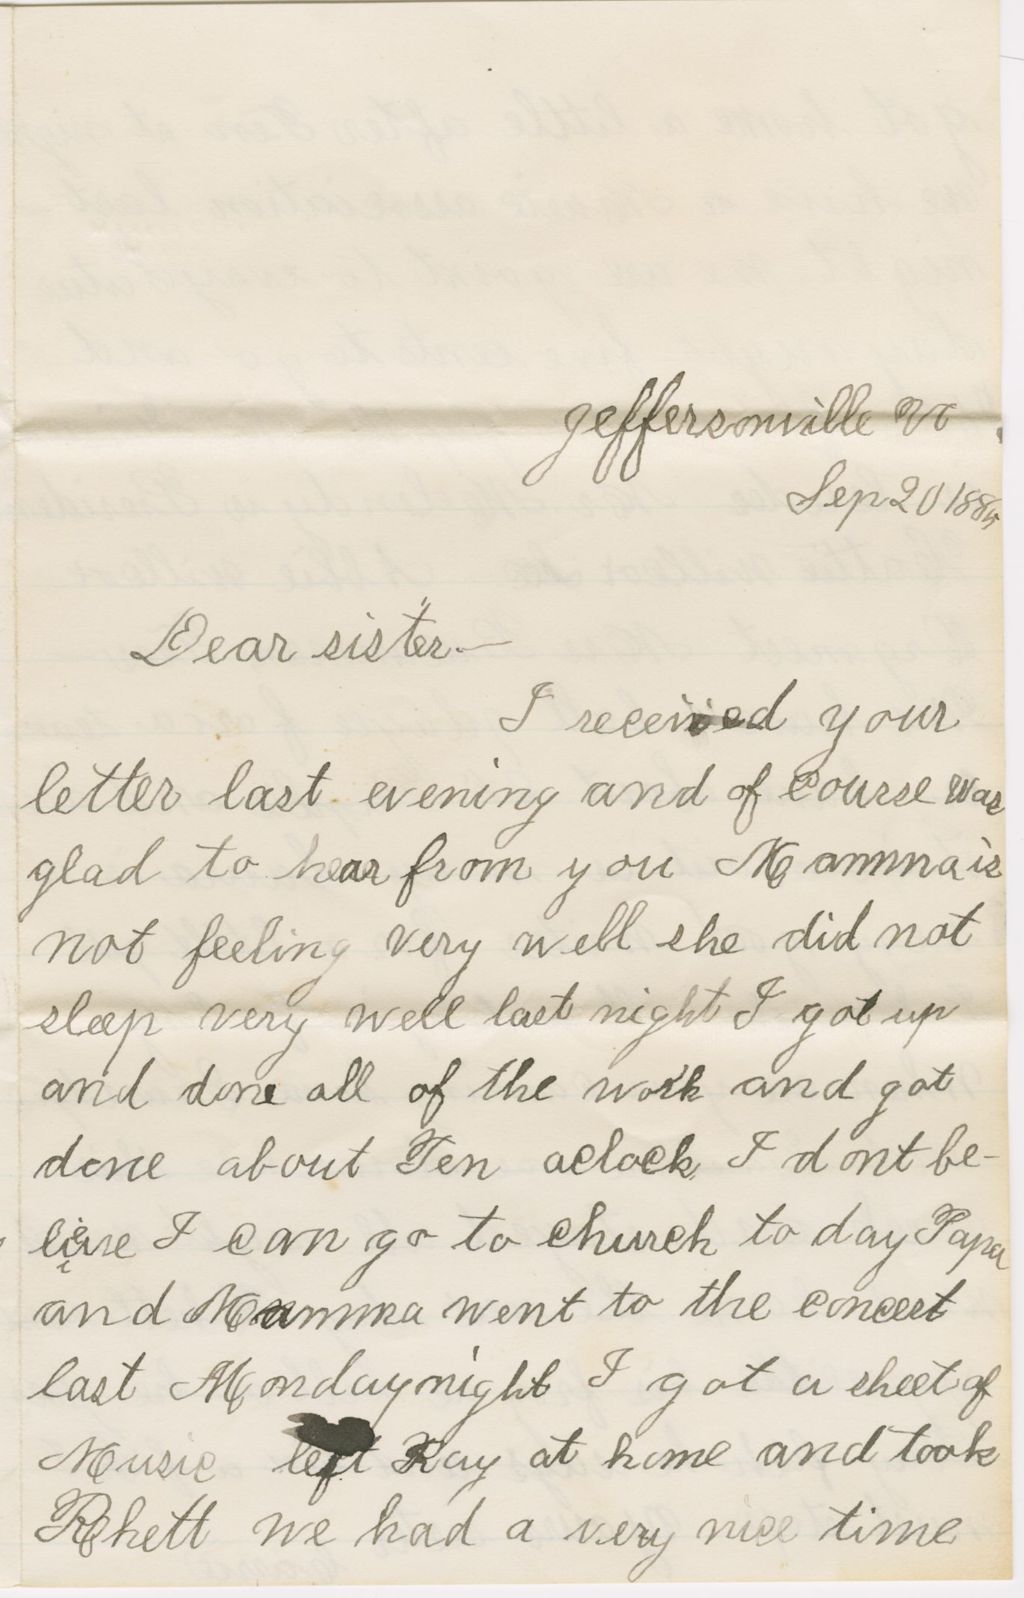 Jeffersonville Vt
Sep 20 1885
Dear sister.—
I received your
letter last evening and of course was
glad to hear from you Mamma is
not feeling very well she did not
sleep very well last night I got up
and done all of the work and got
done about Ten oclock, I dont be-
live I can go to church to day Papa
and Mamma went to the concert
last Monday night I got a sheet of
Music left Kay at home and took
Rhett we had a very nice time